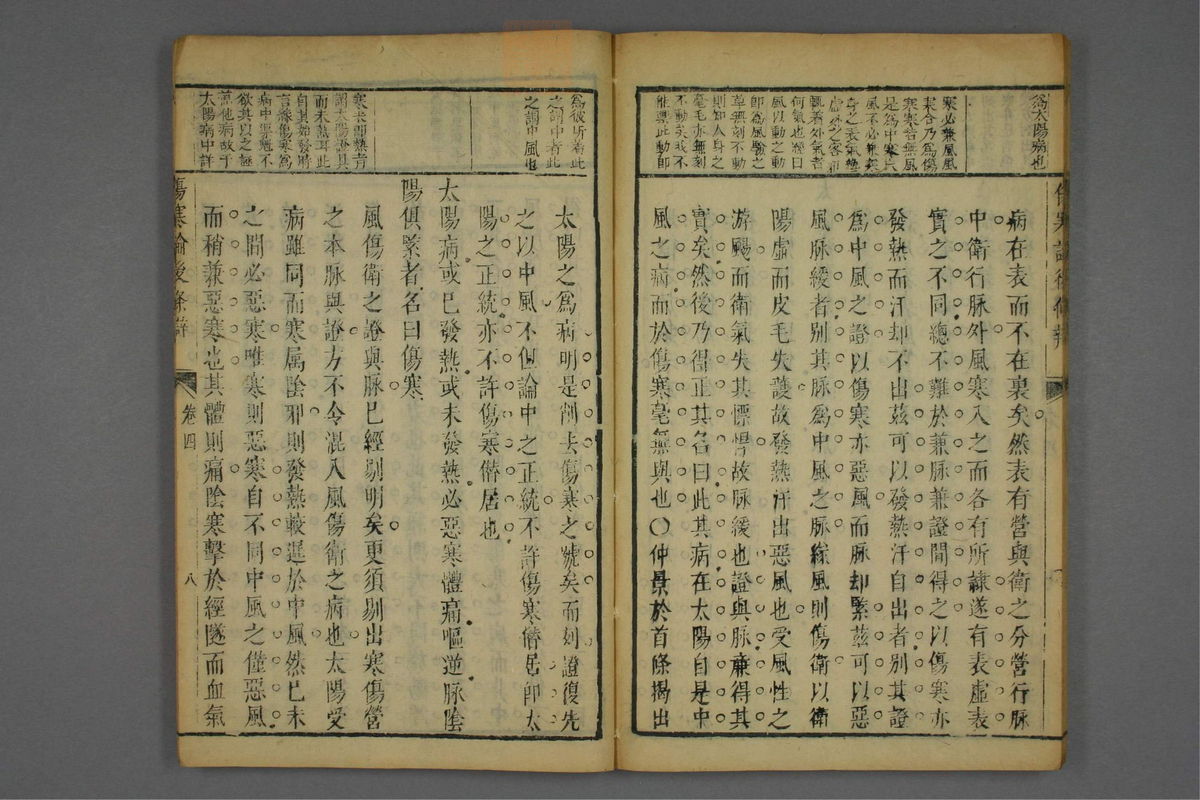 為太陽病也
寒必兼風風
寒合乃為傷
寒寒若無風
是為中寒
風不必兼寒
身之表氣
何氣也經曰
風以動之動
即為風驗之
草無刻不動
則知人身之
毫毛亦無刻
不動矣或不
能禦此動即
病在表而不在裏矣然表有營與衛之分營行脉
中衛行脉外風寒入之而各有所隷遂有表虛表
實之不同總不難於兼脉兼證間得之以傷寒亦
發熱而汗却不出茲可以發熱汗自出者別其證
為中風之證以傷寒亦惡風而脉却緊茲可以惡
風脉緩者別其脉為中風之脉緣風則傷衛以衛
陽虛而皮毛失護故發熱汗出惡風也受風性之
游颺而衛氣失其慓悍故脉緩也證與脉兼得其
實矣然後乃得正其名曰此其病在太陽自是中
風之病而於傷寒毫無與也〇仲景於首條揭出
為彼所着此
之謂中者此
之謂中風也
寒未即熱言
謂太陽證具
而未熱耳此
自其始發時
言緣傷寒為
病中暴尅不
欲其以之誣
蓋他病故于
太陽病中詳
太陽之為病明是削去傷寒之號矣而刻證復先
之以中風不但論中之正統不許傷寒僭居即太
陽之正統亦不許傷寒僭居也
太陽病或已發熱或未發熱必惡寒體痛嘔逆脉陰
陽俱緊者名曰傷寒
風傷衛之證與脉已經剔明矣更須剔出寒傷營
之本脉與證方不令混入風傷衛之病也太陽受
病雖同而寒屬陰邪則發熱較遲於中風然已未
之間必惡寒唯寒則惡寒自不同中風之僅惡風
而稍兼惡寒也其體則痛陰寒擊於經隧而血氣
傷寒論後條辨
卷四
八